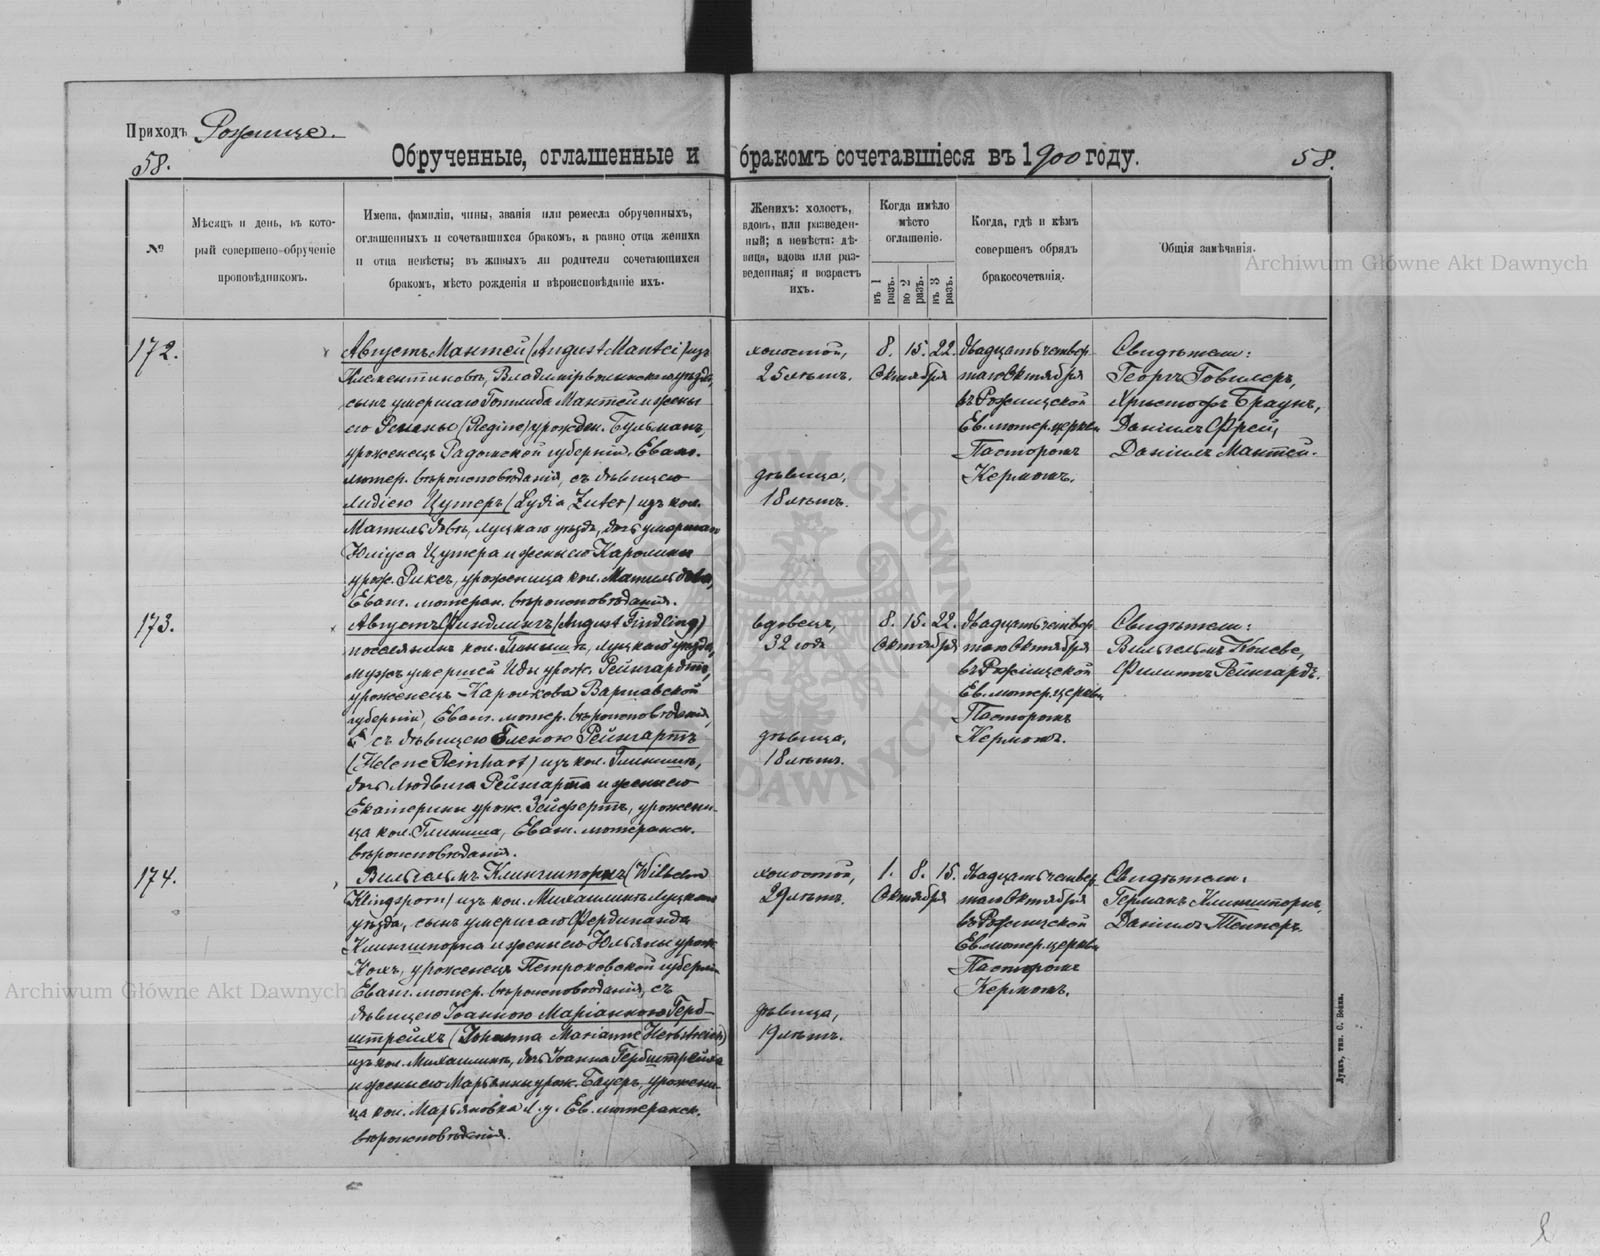 Приходъ Рожище.
58.
Обрученные, оглашенные и бракомъ сочетавшіеся въ 1900 году.
58.
№
Мѣсяцъ и день, въ кото-
рый совершено обрученіе
проповѣдникомъ.
Имена, фамиліи, чины, званія или ремесла обрученныхъ,
оглашенныхъ и сочетавшихся бракомъ, а равно отца жениха
и отца невѣсты; въ живыхъ ли родители сочетающихся
бракомъ, мѣсто рожденія и вѣроисповѣданіе ихъ.
Женихъ: холостъ,
вдовъ, или разведен-
ный; а невѣста: дѣ-
вица, вдова или раз-
веденная; и возрастъ
ихъ.
Когда имѣло
мѣсто
оглашеніе.
въ 1 разъ.
во 2 разъ.
въ 3 разъ.
Когда, гдѣ и кѣмъ
совершенъ обрядъ
бракосочетанія.
Общія замѣчанія.
Archiwum Główne Akt Dawnych
172.
Августъ Мантей (August Mantei) изъ
Клементиновъ, Владимірволынскаго уѣзда,
сынъ умершаго Готлиба Мантей и жены
его Регины (Regine) урожден. Бульманъ,
уроженецъ Радомской губерніи, Еванг.
лютер. вѣроисповѣданія, съ дѣвицею
Лидіею Цутеръ (Lydia Zuter) изъ кол.
Матильдовъ, Луцкаго уѣзда, дочь умершаго
Юліуса Цутера и жены его Каролины
урож. Риксъ, уроженица кол. Матильдовъ,
Еванг. лютеран. вѣроисповѣданія.
холостой,
25 лѣтъ.
дѣвица,
18 лѣтъ.
8. 15. 22.
Октября
Двадцать четвер
таго Октября
въ Рожищской
Ев. лютер. церкви
Пасторомъ
Кермомъ.
Свидѣтели:
Георгъ Говилеръ,
Христофъ Браунъ,
Даніилъ Фрей,
Даніилъ Мантей.
173.
Августъ Финдлингъ (August Findling)
поселянинъ кол. Луцкаго уѣзда,
мужъ умершей Иды урож. Рейнгардтъ,
уроженецъ Варшавской
губерніи, Еванг. лютер. вѣроисповѣданія,
съ дѣвицею Еленою Рейнгартъ
(Helene Reinhart) изъ кол. Глинишъ,
дочь Людвига Рейнгарта и жены его
Екатерины урож. Зейфертъ, урожени-
ца кол. Глинища, Еванг. лютеранск.
вѣроисповѣданія.
вдовецъ,
32 года
дѣвица,
18 лѣтъ.
8. 15. 22.
Октября
Двадцать четвер
таго Октября
въ Рожищской
Ев. лютер. церкви
Пасторомъ
Кермомъ.
Свидѣтели:
Вильгельмъ
Филиппъ Рейнгардъ.
174.
Вильгельмъ Клингшпорнъ (Wilhelm
Klingsporn) изъ кол. Михалинъ Луцкаго
уѣзда, сынъ умершаго Фердинанда
Клингшпорна и жены его Юльяны урож.
уроженецъ Петроковской губерніи
Еванг. лютер. вѣроисповѣданія, съ
дѣвицею Іоанною Маріанною Герб-
штрейхъ (Johanna Marianne Herbstreich)
изъ кол. Михалинъ, дочь Іоанна Гербштрейха
и жены его Марьянны урож. Бауеръ, урожени-
ца кол. Марьяновка Л. у. Ев. лютеранск.
вѣроисповѣданія.
холостой,
29 лѣтъ.
дѣвица,
19 лѣтъ.
1. 8. 15.
Октября
Двадцать четвер
таго Октября
въ Рожищской
Ев. лютер. церкви
Пасторомъ
Кермомъ.
Свидѣтели:
Германъ Клингшпорнъ,
Даніилъ Тепперъ.
Archiwum Główne Akt Dawnych
Луцкъ, тип. С. Бокна.